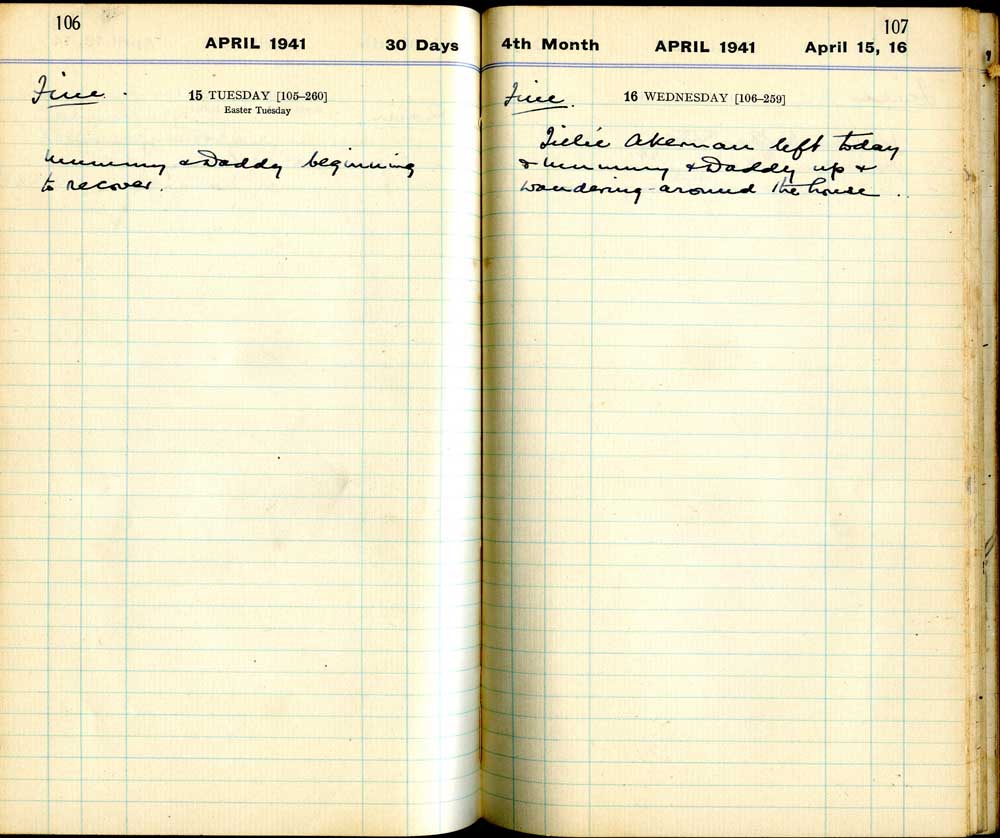 106
APRIL 1941 30 Days
Fine.
15 TUESDAY [105–260]
Easter Tuesday
Mummy & Daddy beginning
to recover.
107
4th Month APRIL 1941 April 15, 16
Fine.
16 WEDNESDAY [106–259]
Tillie Akerman left today
& Mummy & Daddy up &
wandering around the house.